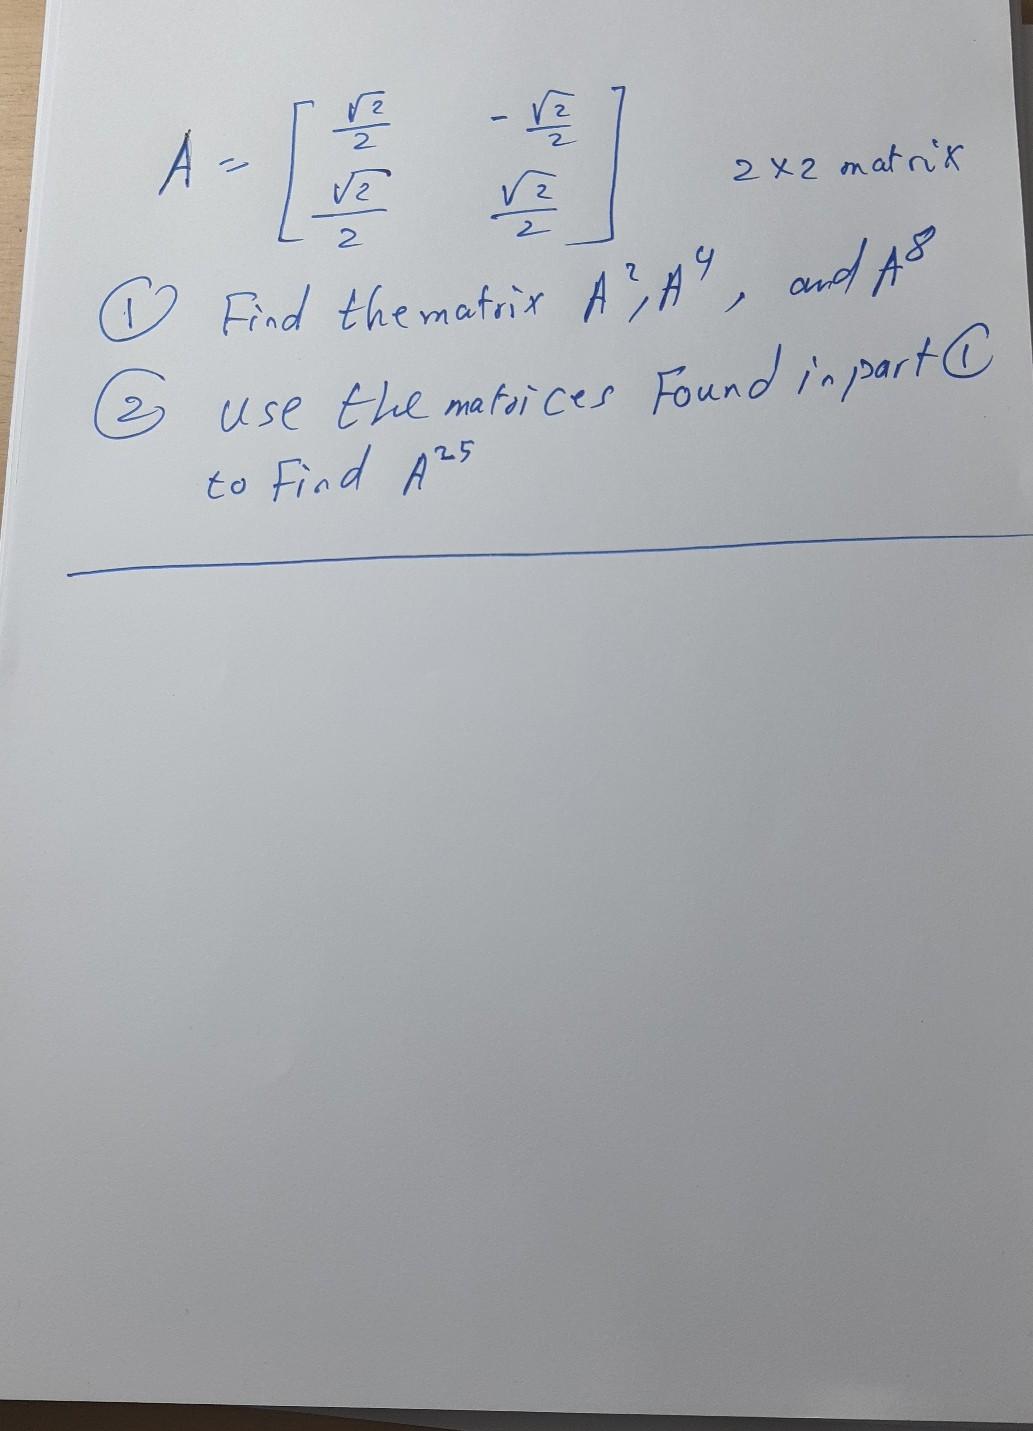 A = [ √2/2 - √2/2
√2/2 √2/2 ] 2×2 matrix
① Find the matrix A², A⁴, and A⁸
② use the matrices Found in part ①
to Find A²⁵